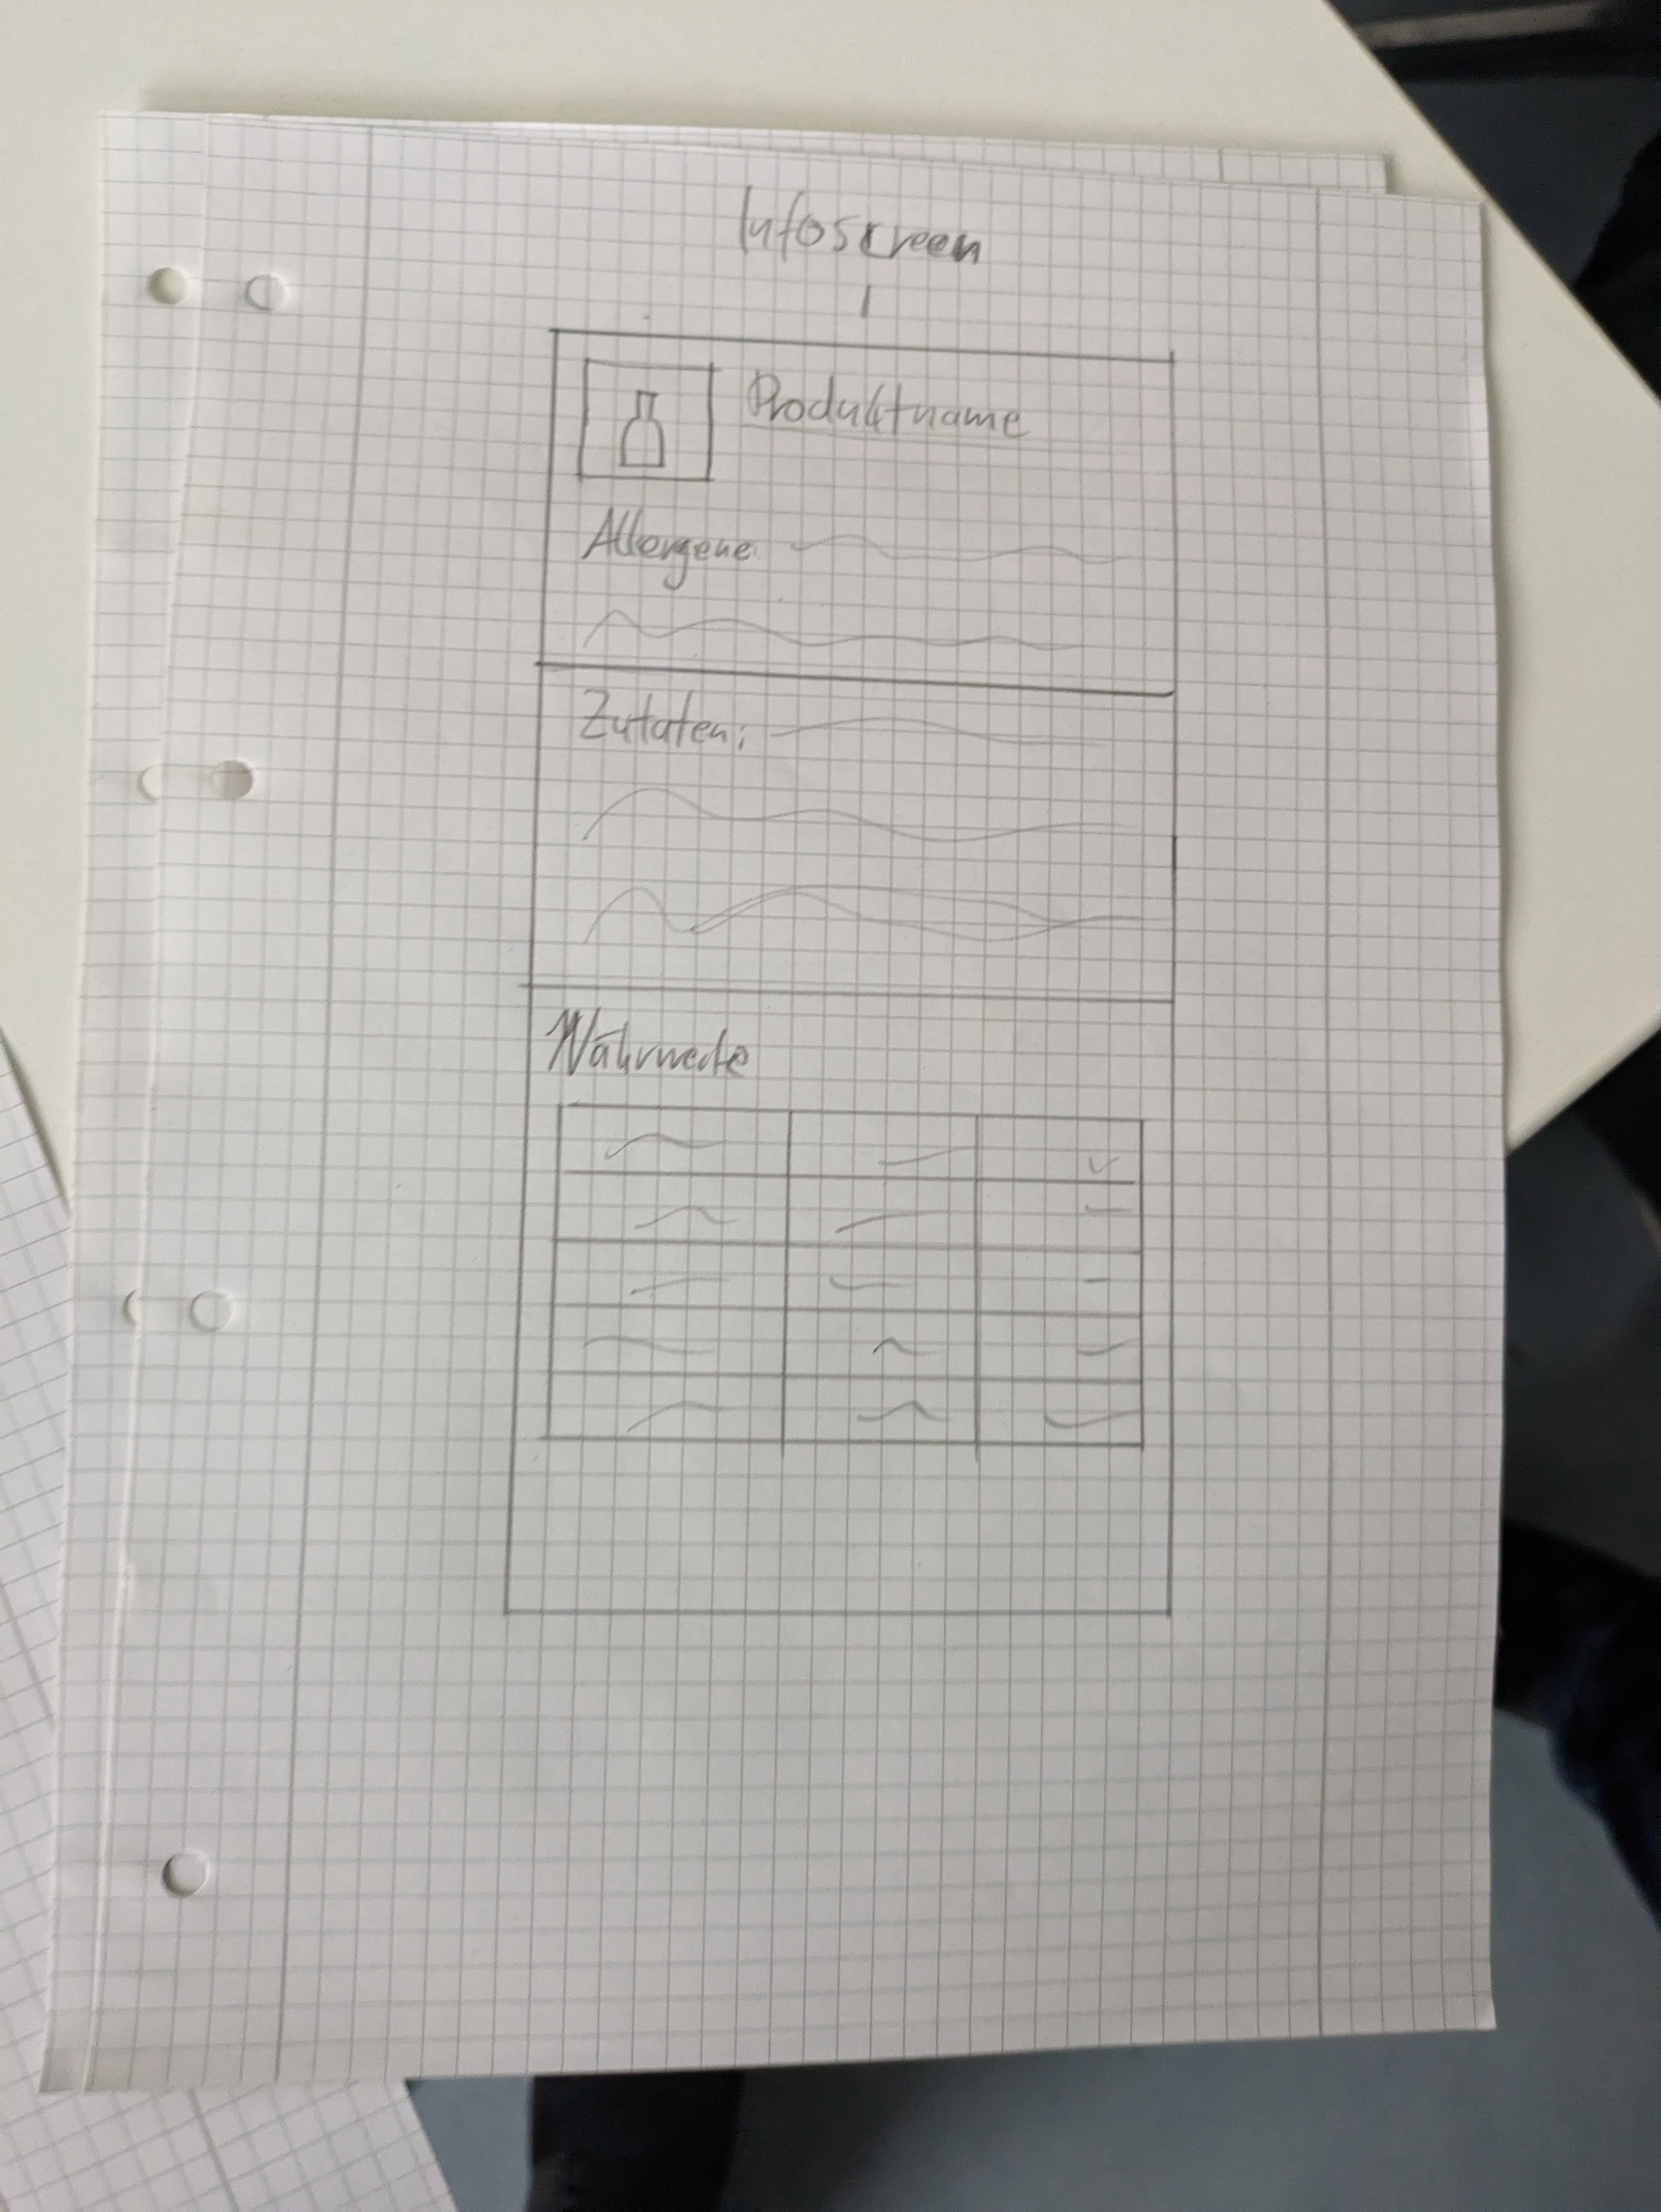 Infoscreen
Produktname
Allergene
Zutaten:
Nährwerte